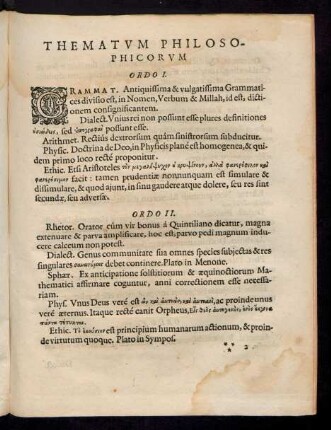 THEMATVM PHILOSO-
PHICORVM
ORDO I.
GRAMMAT. Antiquissima & vulgatissima Grammati-
ces divisio est, in Nomen, Verbum & Millah, id est, dicti-
onem consignificantem.
Dialect. Vnius rei non possunt esse plures definitiones
sed possunt esse.
Arithmet. Rectiùs dextrorsum quàm sinistrorsum subducitur.
Physic. Doctrina de Deo, in Physicis planè est homogenea, & qui-
dem primo loco rectè proponitur.
Ethic. Etsi Aristoteles
facit: tamen prudentiæ nonnunquam est simulare &
dissimulare, & quod ajunt, in sinu gaudere atque dolere, seu res sint
secundæ, seu adversæ.
ORDO II.
Rhetor. Orator cùm vir bonus à Quintiliano dicatur, magna
extenuare & parva amplificare, hoc est, parvo pedi magnum indu-
cere calceum non potest.
Dialect. Genus communitate sua omnes species subjectas & res
singulares debet continere. Plato in Menone.
Sphær. Ex anticipatione solstitiorum & æquinoctiorum Ma-
thematici affirmare coguntur, anni correctionem esse necessa-
riam.
Phys. Vnus Deus verè est ac proinde unus
verè æternus. Itaque rectè canit Orpheus,
Ethic. est principium humanarum actionum, & proin-
de virtutum quoque. Plato in Sympos.
2